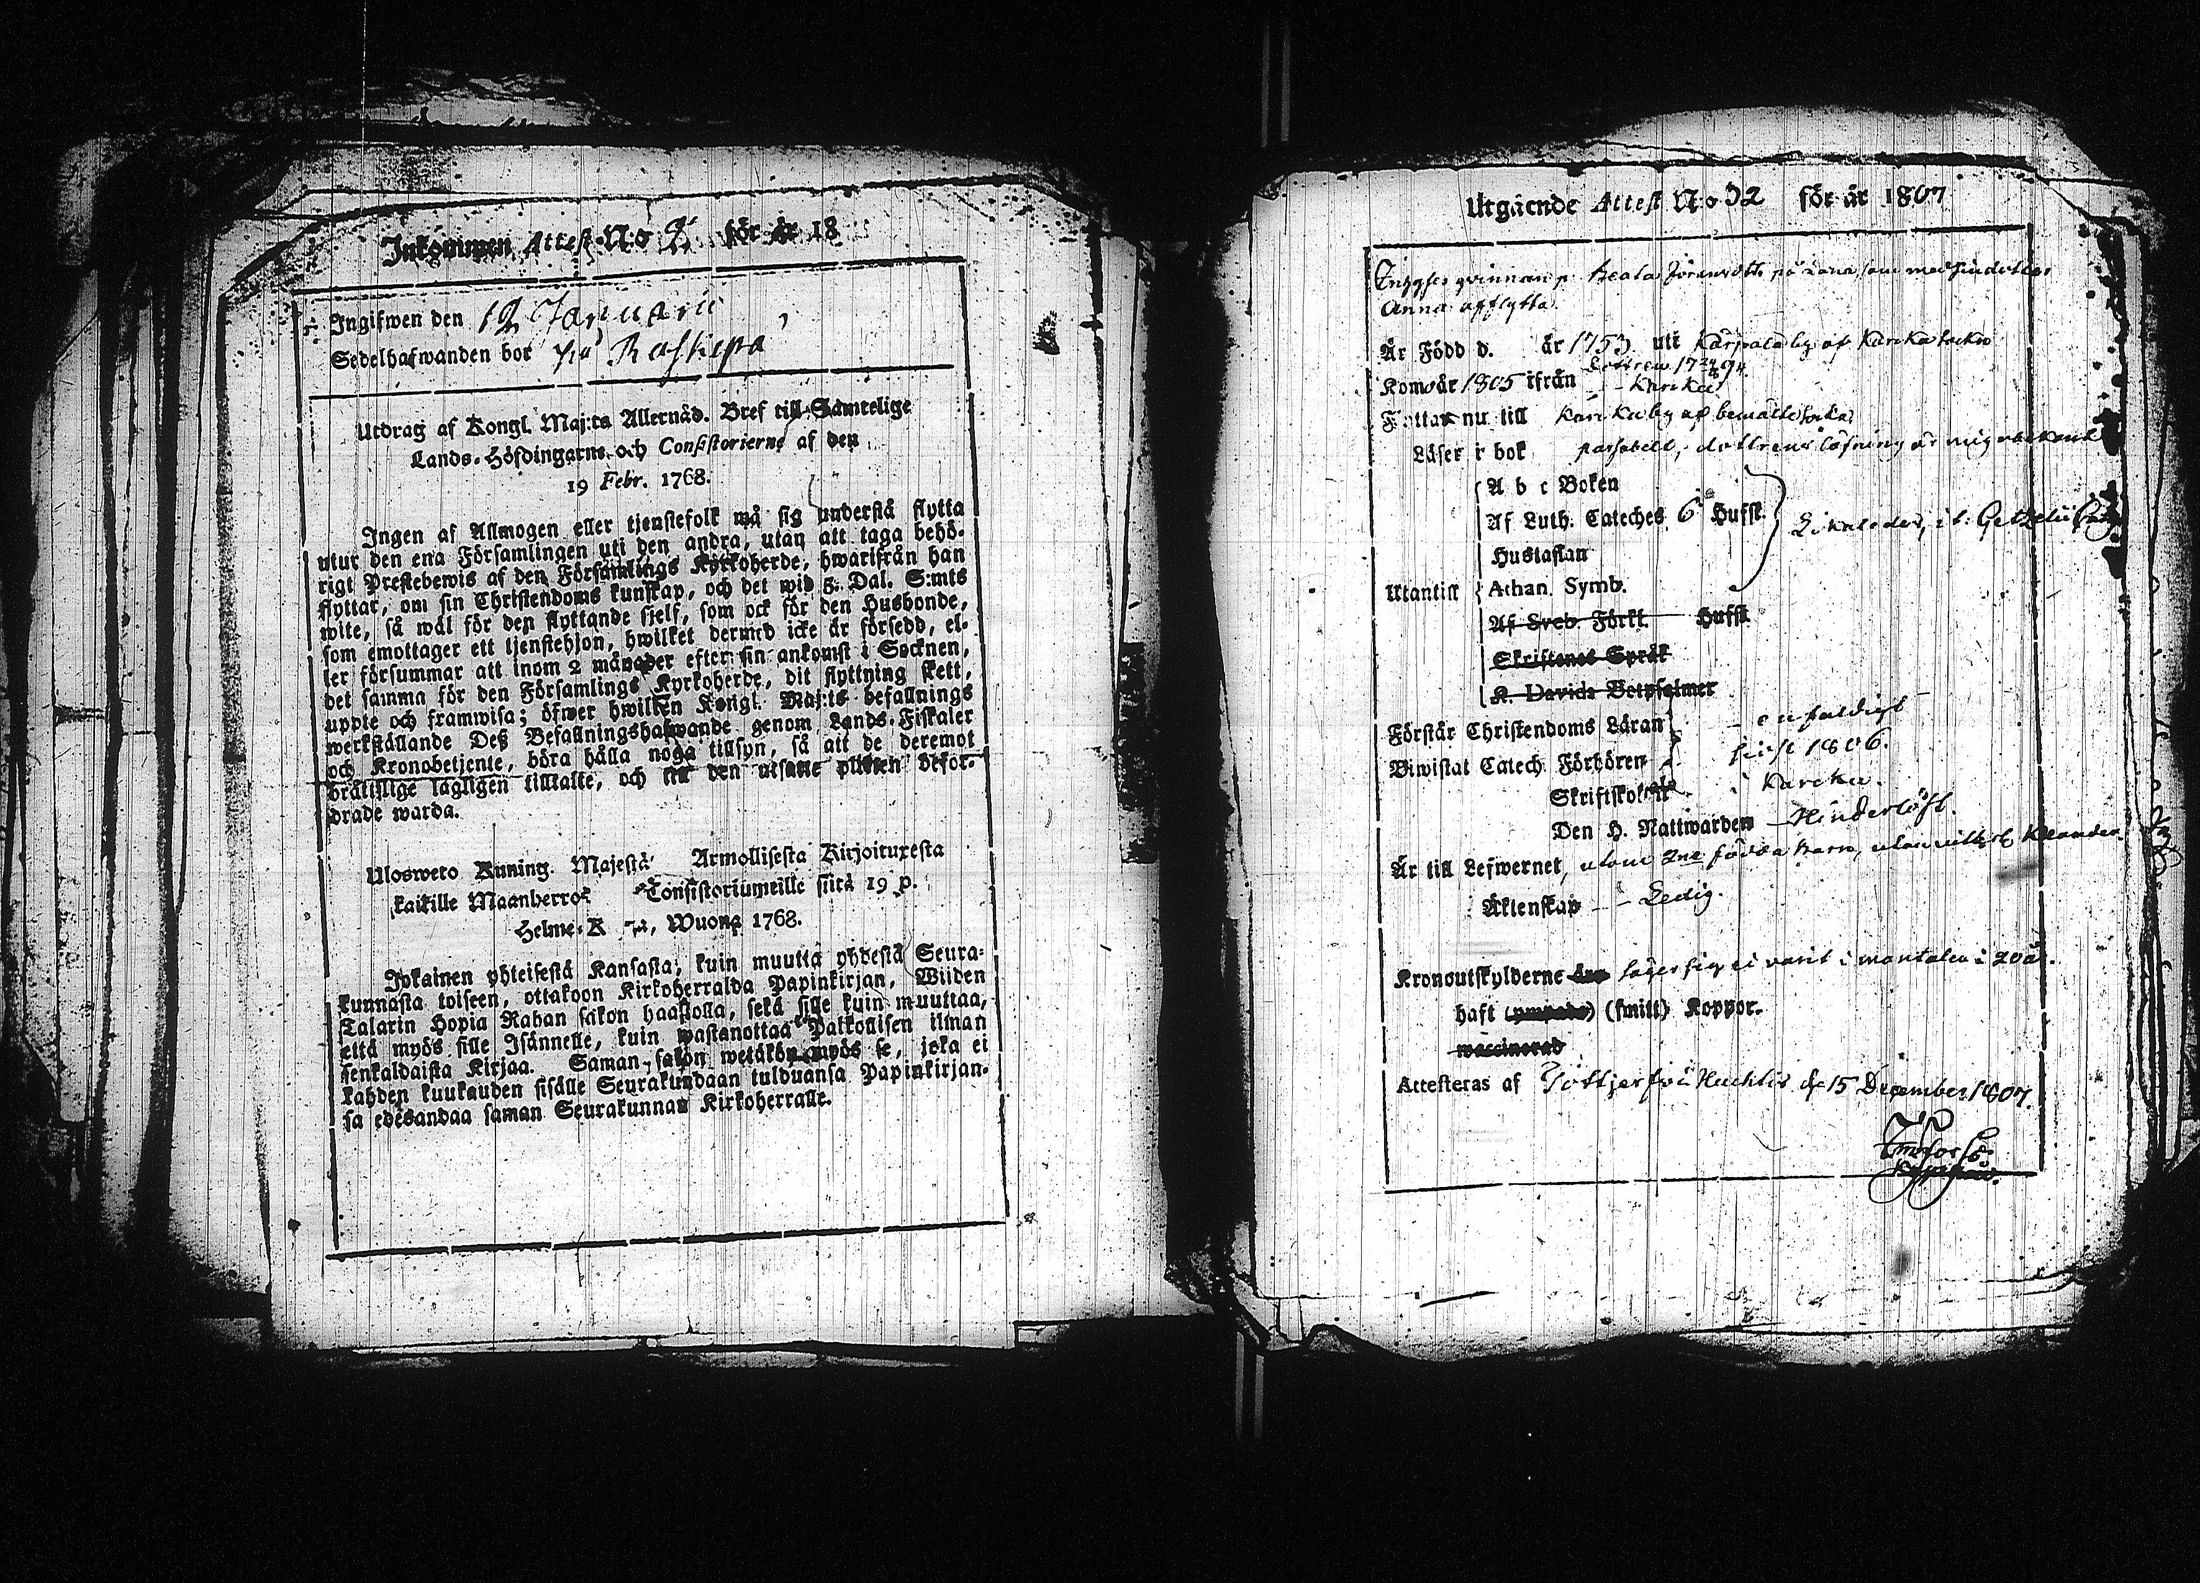 Inkommen Attest N:o 2 för år 18
Ingifwen den 12 Januarii
Sedelhafwanden bor på Raskepa
Utdrag af Kongl. Maj:ts Allernåd. Bref till Samtelige
Lands-Höfdingarne och Consistorierne af den
19 Febr. 1768.
Ingen af Allmogen eller tjenstefolk må sig understå flytta
utur den ena Församlingen uti den andra, utan att taga behö-
rigt Prestebewis af den Församlings Kyrkoherde, hwarifrån han
flyttar, om sin Christendoms kunskap, och det wid 5. Dal. S:mts
wite, så wäl för den flyttande sjelf, som ock för den Husbonde,
som emottager ett tjenstehjon, hwilket dermed icke är försedd, el-
ler försummar att inom 2 månader efter sin ankomst i Socknen,
det samma för den Församlings Kyrkoherde, dit flyttning skett,
uppte och framwisa; öfwer hwilken Kongl. Maj:ts befallnings
werkställande Deß Befallningshafwande genom Lands-Fiskaler
och Kronobetjente, böra hålla noga tillsyn, så att de deremot
brättslige lagligen tilltalte, och till den utsatte plikten befor-
drade warda.
Ulosweto Kuning. Majestä Armollisesta Kirjoituxesta
kaikille Maanherroi Consistoriumeille siitä 19 p.
Helme-K Wuona 1768.
Jokainen yhteisestä Kansasta, kuin muutta yhdestä Seura-
kunnasta toiseen, ottakoon Kirkoherralda Papinkirjan, Wiiden
Talarin Hopia Rahan sakon haastolla, sekä sille kuin muuttaa,
että myös sille Isännelle, kuin wastanottaa Palkollisen ilman
senkaldaista Kirjaa. Saman sakon wetäkön myös se, joka ei
kahden kuukauden sisälle Seurakundaan tulduansa Papinkirjan-
sa edesandaa saman Seurakunnan Kirkoherralle.
Utgående Attest N:o 32 för år 1807
qvinnan p. Beata Jöransdotter på Lana som med sin dotter
Anna afflytta
Är Född d. år 1753 uti Kärpälä by af Karcku sockn
Dottren 1794
Kom år 1805 ifrån Karcku
Flyttar nu till Karcku by af bemälte sockn
Läser i bok passabelt, dottrens läsning är mig obekant
A b c Boken
Af Luth. Cateches 6 Hufst.
Hustaflan
Utantill Athan. Symb.
Af Sveb. Förkl. Hufst.
Skriftenes Språk
K. Davids Botpsalmer
Förstår Christendoms Läran enfaldigt
Biwistat Catech. Förhören sist 1806.
Skriftskolan i Karcku.
Den H. Nattwarden Hinderlöst.
Är till Lefwernet, utom födda barn, utan klander
Äktenskap Ledig.
Kronoutskylderne säger sig ei varit i mantalen i 20 år.
haft (ympade) (smitt) Koppor.
waccinerad
Attesteras af Huchtis d. 15 December 1807.